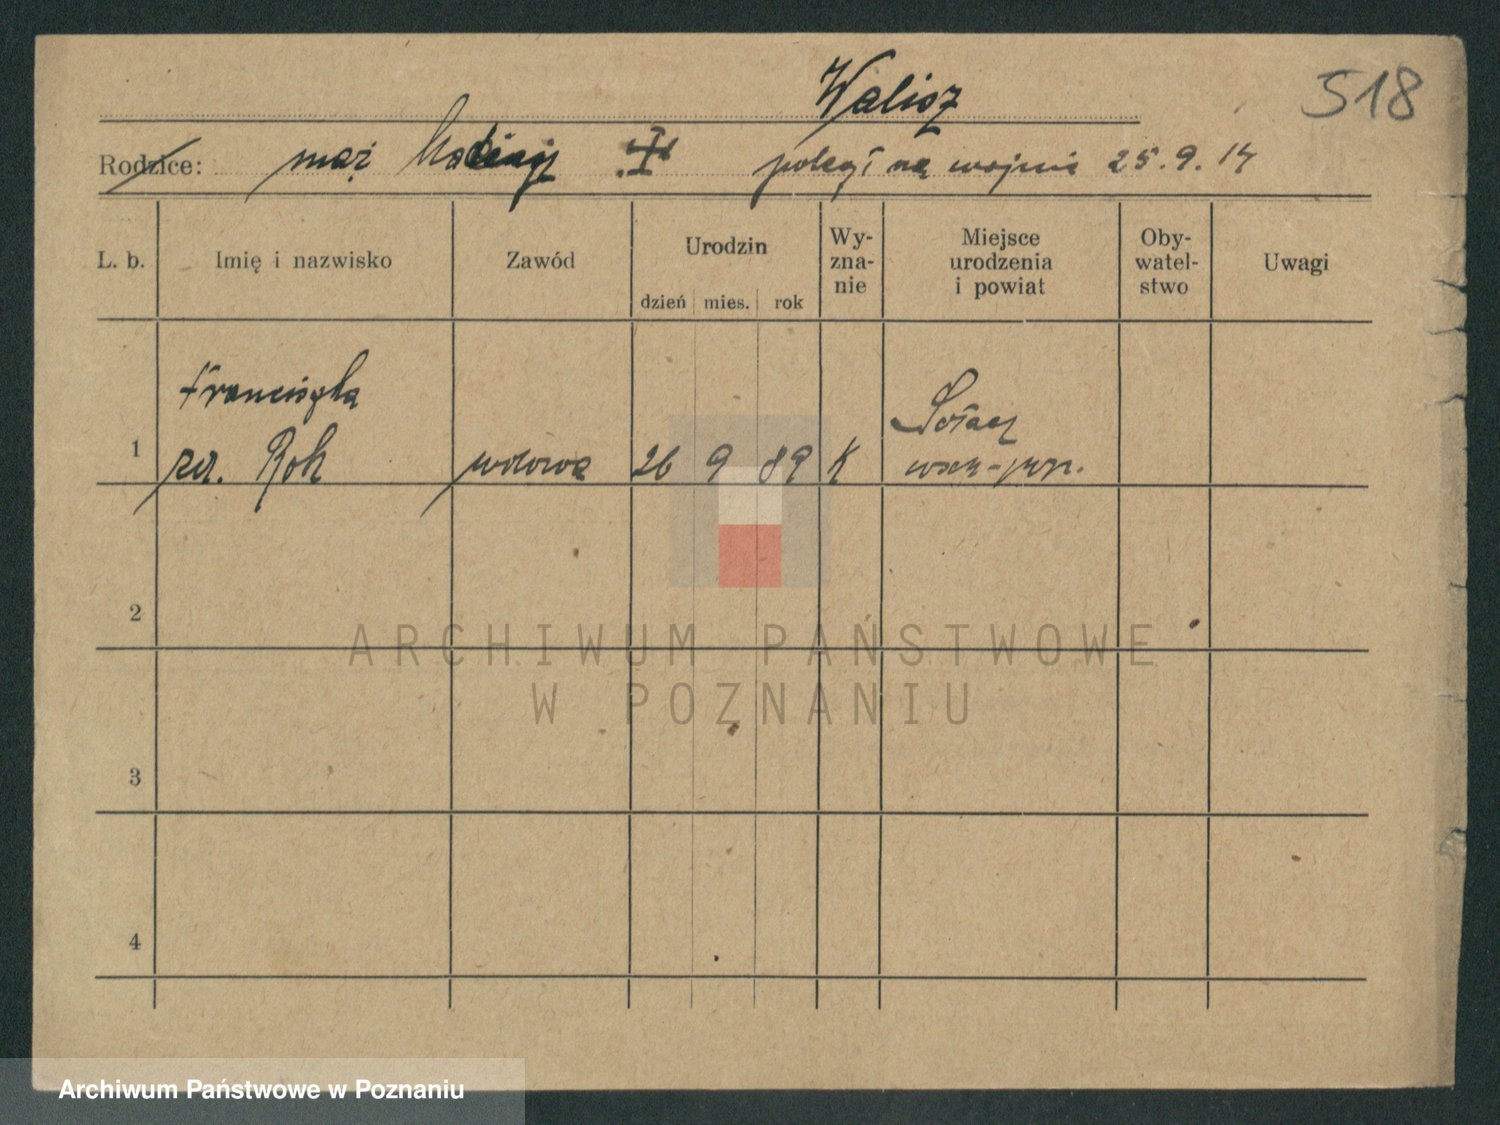 Walisz 518
Rodzice: mąż poległ na wojnie 25.9.14
L. b. Imię i nazwisko Zawód Urodzin dzień mies. rok Wy-zna-nie Miejsce urodzenia i powiat Oby-watel-stwo Uwagi
Franciszka
1 zd. Rok wdowa 26 9 89 K Sołacz
2
ARCHIWUM PAŃSTWOWE
W POZNANIU
3
4
Archiwum Państwowe w Poznaniu